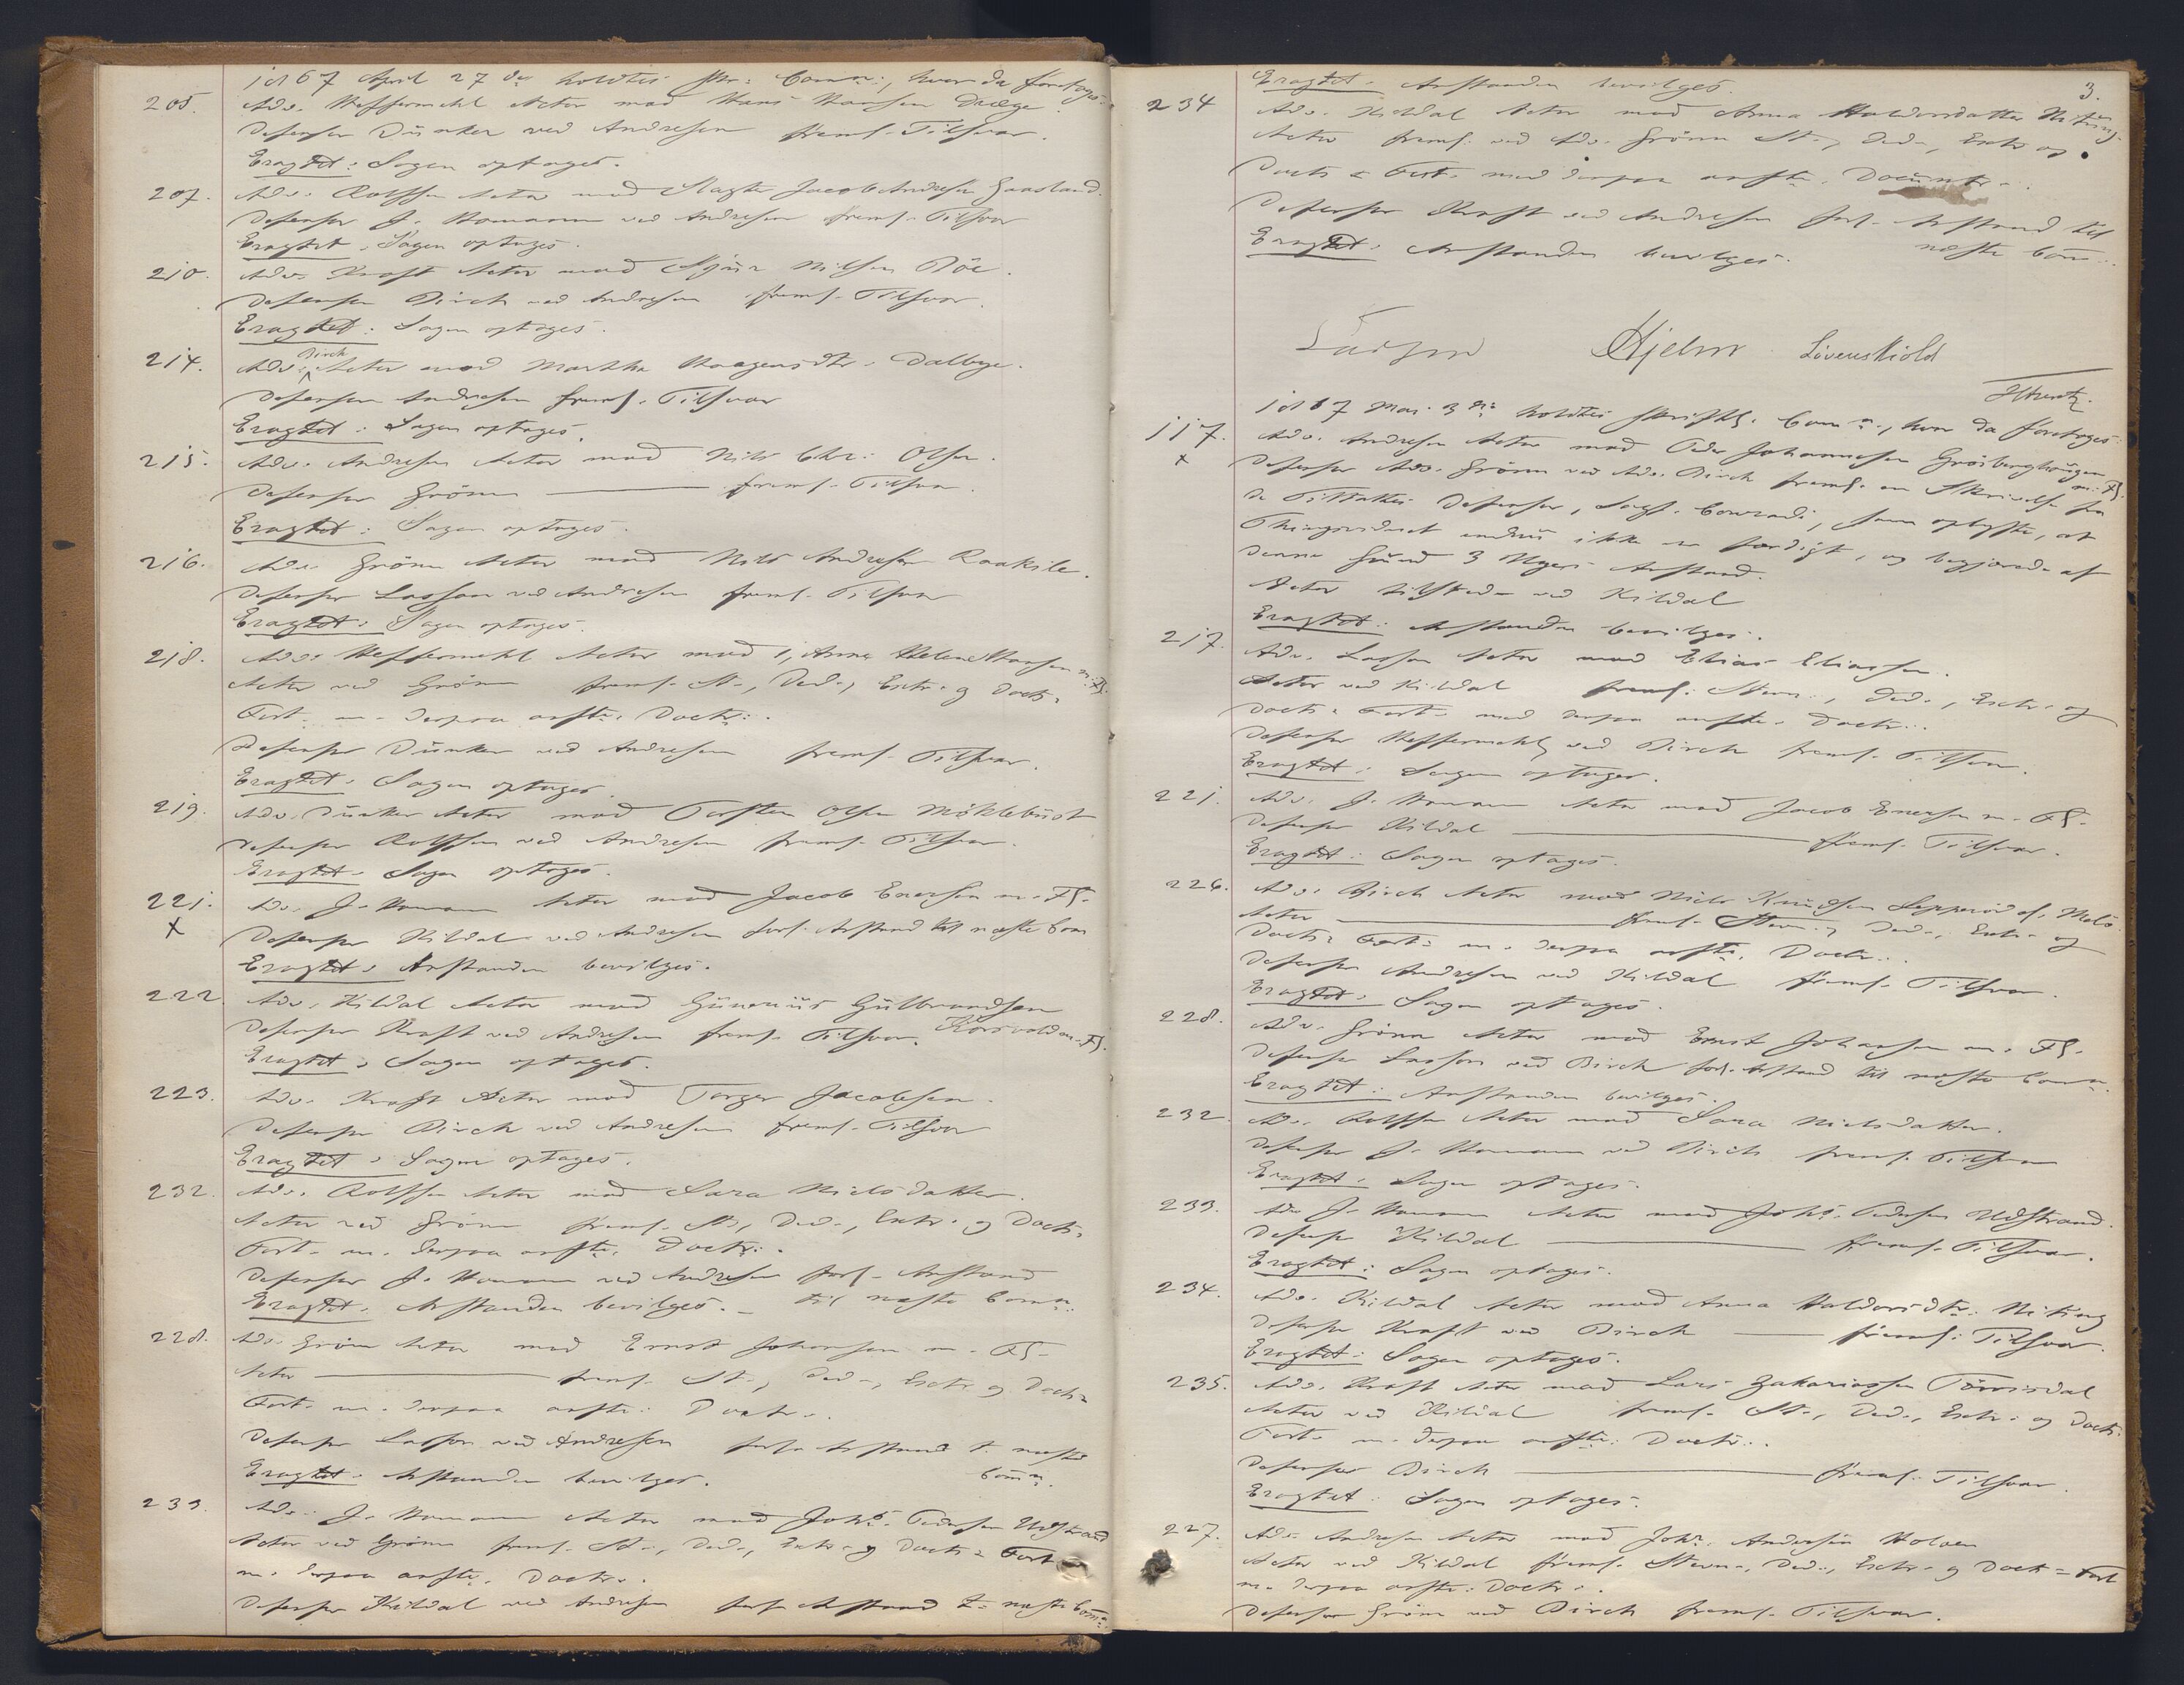 1867 April 27de holdtes skr: Comm:, hvor da foretoges:
205. Adv. Heffermehl Actor mod Hans Hansen Dræge
Defensor Dunker ved Andresen freml. Tilsvar.
Eragtet: Sagen optages.
207. Adv. Rolffsen Actor mod Slagter Jacob Andresen Gaasland.
Defensor J. Homann ved Andresen freml. Tilsvar
Eragtet. Sagen optages.
210. Adv. Kraft Actor mod Nilsen Röe.
Defensor Birch ved Andresen freml. Tilsvar.
Eragtet: Sagen optages.
214. Adv. Birch Actor mod Martha Haagensdtr. Dalbye.
Defensor Andresen freml. Tilsvar
Eragtet: Sagen optages.
215. Adv. Andresen Actor mod Nils Chr: Olsen.
Defensor Grönn ——— freml. Tilsvar.
Eragtet: Sagen optages.
216. Adv. Grönn Actor mod Nils Andresen Raakile.
Defensor Lasson ved Andresen freml. Tilsvar
Eragtet: Sagen optages.
218. Adv. Heffermehl Actor mod 1, Anne Helene Hansen m. Fl.
Actor ved Grönn freml. St., Ded., Extr. og Docts.
Fort. m. derpaa anfte. Doctr.
Defensor Dunker ved Andresen freml. Tilsvar.
Eragtet: Sagen optages.
219. Adv. Dunker Actor mod Torsten Olsen Möklebust
Defensor Rolffsen ved Andresen freml. Tilsvar.
Eragtet. Sagen optages.
221. Adv. J. Homann Actor mod Jacob Enersen m. Fl.
x Defensor Kildal ved Andresen forl. Anstand til næste Com
Eragtet: Anstanden bevilges.
222. Adv. Kildal Actor mod Gunerius Gulbrandsen
Defensor Kraft ved Andresen freml. Tilsvar. Korsvold m. Fl.
Eragtet: Sagen optages.
223. Adv. Kraft Actor mod Torger Jacobsen.
Defensor Birch ved Andresen freml. Tilsvar
Eragtet: Sagen optages.
232. Adv. Rolffsen Actor mod Sara Nielsdatter.
Actor ved Grönn freml. St., Ded., Extr. og Docts.
Fort. m. derpaa anfte. Doctr.
Defensor J. Homann ved Andresen forl. Anstand
Eragtet: Anstanden bevilges. – til næste Comm:
228. Adv. Grönn Actor mod Ernst Johansen m. Fl.
Actor ——— freml. St., Ded., Extr. og Docts
Fort. m. derpaa anfte: Doctr.
Defensor Lasson ved Andresen forl. Anstand t. næste
Eragtet: Anstanden bevilges. Comm.
233. Adv. J. Homann Actor mod Johs. Pedersen Udstrand
Actor ved Grönn freml. St., Ded., Extr. og Docts Fort
m. derpaa anfte. Doctr.
Defensor Kildal ved Andresen forl. Anstand t. næste Com:
3.
Eragtet. Anstanden bevilges.
234 Adv. Kildal Actor mod Anna Haldorsdatter Niting.
Actor freml. ved Adv. Grönn St., Ded., Extr. og
Docts Fort. med derpaa anfte. Documtr.
Defensor Kraft ved Andresen forl. Anstand til
Eragtet: Anstanden bevilges. næste Com:
Lasson Hjelm Lövenskiold
1867 Mai 3die holdtes skriftl. Comm., hvor da foretoges
117. Adv. Andresen Actor mod Peder Johannesen Grösberghaugen m. Fl.
x Defensor Adv. Grönn ved Adv. Birch freml. en Skrivelse fra
de Tiltaltes Defensor, Sagf. Conradi, som oplyste, at
Thingsvidnet endnu ikke er færdigt, og begjærede af
denne Grund 3 Ugers Anstand.
Actor tilstede ved Kildal
Eragtet: Anstanden bevilges.
217. Adv. Lasson Actor mod Elias Eliassen.
Actor ved Kildal freml. Stevn., Ded., Extr. og
Docts Fort. med derpaa anfte. Doctr.
Defensor Heffermehl ved Birch freml. Tilsvar.
Eragtet: Sagen optages.
221. Adv. J. Homann Actor mod Jacob Enersen m. Fl.
Defensor Kildal ——— freml. Tilsvar.
Eragtet: Sagen optages.
226. Adv. Birch Actor mod Niels Knudsen Lepperöd
Actor ——— freml. Stevn., Ded., Extr. og
Docts Fort. m. derpaa anfte. Doctr.
Defensor Andresen ved Kildal freml. Tilsvar.
Eragtet: Sagen optages.
228. Adv. Grönn Actor mod Ernst Johansen m. Fl.
Defensor Lasson ved Birch forl. Anstand til næste Comm.
Eragtet: Anstanden bevilges.
232. Adv. Rolffsen Actor mod Sara Nielsdatter.
Defensor J. Homann ved Birch freml. Tilsvar
Eragtet: Sagen optages.
233. Adv. J. Homann Actor mod Johs. Pedersen Udstrand.
Defensor Kildal ——— freml. Tilsvar.
Eragtet: Sagen optages.
234. Adv. Kildal Actor mod Anna Haldorsdtr. Niting
Defensor Kraft ved Birch — freml. Tilsvar.
Eragtet: Sagen optages.
235. Adv. Kraft Actor mod Lars Zakariassen Tönisdal
Actor ved Kildal freml. St., Ded., Extr. og Docts
Fort. m. derpaa anfte. Doctr.
Defensor Birch ——— freml. Tilsvar.
Eragtet: Sagen optages.
227. Adv. Andresen Actor mod Johs. Andersen Holven
Actor ved Kildal freml. Stevn., Ded., Extr. og Docts Fort
m. derpaa anfte: Doctr.
Defensor Grönn ved Birch freml. Tilsvar.